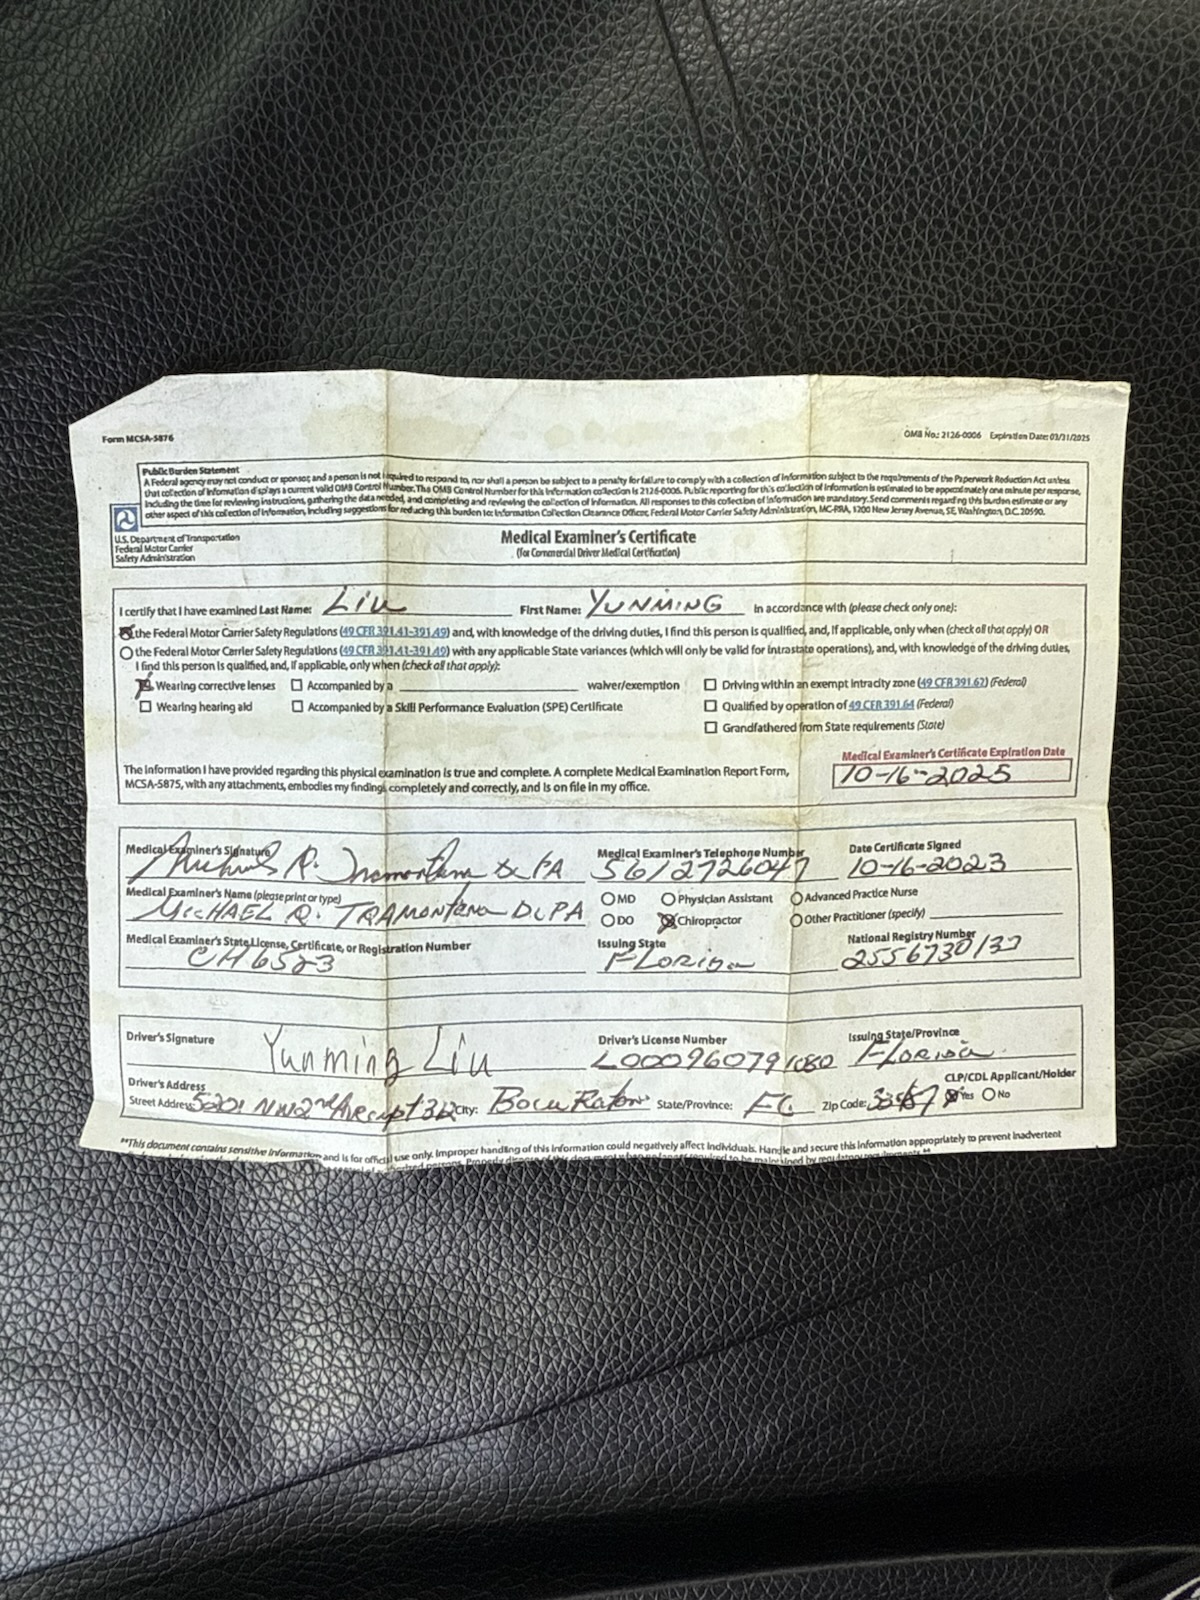 Form MCSA-5876
OMB No.: 2126-0006 Expiration Date: 03/31/2025
Public Burden Statement
A Federal agency may not conduct or sponsor, and a person is not required to respond to, nor shall a person be subject to a penalty for failure to comply with a collection of information subject to the requirements of the Paperwork Reduction Act unless
that collection of information displays a current valid OMB Control Number. The OMB Control Number for this information collection is 2126-0006. Public reporting for this collection of information is estimated to be approximately one minute per response,
including the time for reviewing instructions, gathering the data needed, and completing and reviewing the collection of information. All responses to this collection of information are mandatory. Send comments regarding this burden estimate or any
other aspect of this collection of information, including suggestions for reducing this burden to: Information Collection Clearance Officer, Federal Motor Carrier Safety Administration, MC-RRA, 1200 New Jersey Avenue, SE, Washington, D.C. 20590.
U.S. Department of Transportation
Federal Motor Carrier
Safety Administration
Medical Examiner's Certificate
(for Commercial Driver Medical Certification)
I certify that I have examined Last Name: Liu First Name: YUNMING In accordance with (please check only one):
the Federal Motor Carrier Safety Regulations (49 CFR 391.41-391.49) and, with knowledge of the driving duties, I find this person is qualified, and, if applicable, only when (check all that apply) OR
the Federal Motor Carrier Safety Regulations (49 CFR 391.41-391.49) with any applicable State variances (which will only be valid for intrastate operations), and, with knowledge of the driving duties,
I find this person is qualified, and, if applicable, only when (check all that apply):
Wearing corrective lenses Accompanied by a waiver/exemption Driving within an exempt intracity zone (49 CFR 391.62) (Federal)
Wearing hearing aid Accompanied by a Skill Performance Evaluation (SPE) Certificate Qualified by operation of 49 CFR 391.64 (Federal)
Grandfathered from State requirements (State)
Medical Examiner's Certificate Expiration Date
10-16-2025
The information I have provided regarding this physical examination is true and complete. A complete Medical Examination Report Form,
MCSA-5875, with any attachments, embodies my findings completely and correctly, and is on file in my office.
Medical Examiner's Signature Medical Examiner's Telephone Number Date Certificate Signed
Michael R. Tramontana Dc PA 5612726047 10-16-2023
Medical Examiner's Name (please print or type) MD Physician Assistant Advanced Practice Nurse
MICHAEL R. TRAMONTANA DC PA DO Chiropractor Other Practitioner (specify)
Medical Examiner's State License, Certificate, or Registration Number Issuing State National Registry Number
CH6523 FLORIDA
Driver's Signature Driver's License Number Issuing State/Province
Yunming Liu L000960791080 FLORIDA
Driver's Address CLP/CDL Applicant/Holder
Street Address: 5201 NW 2nd Ave apt 312 City: Boca Raton State/Province: FL Zip Code: Yes No
**This document contains sensitive information and is for official use only. Improper handling of this information could negatively affect individuals. Handle and secure this information appropriately to prevent inadvertent